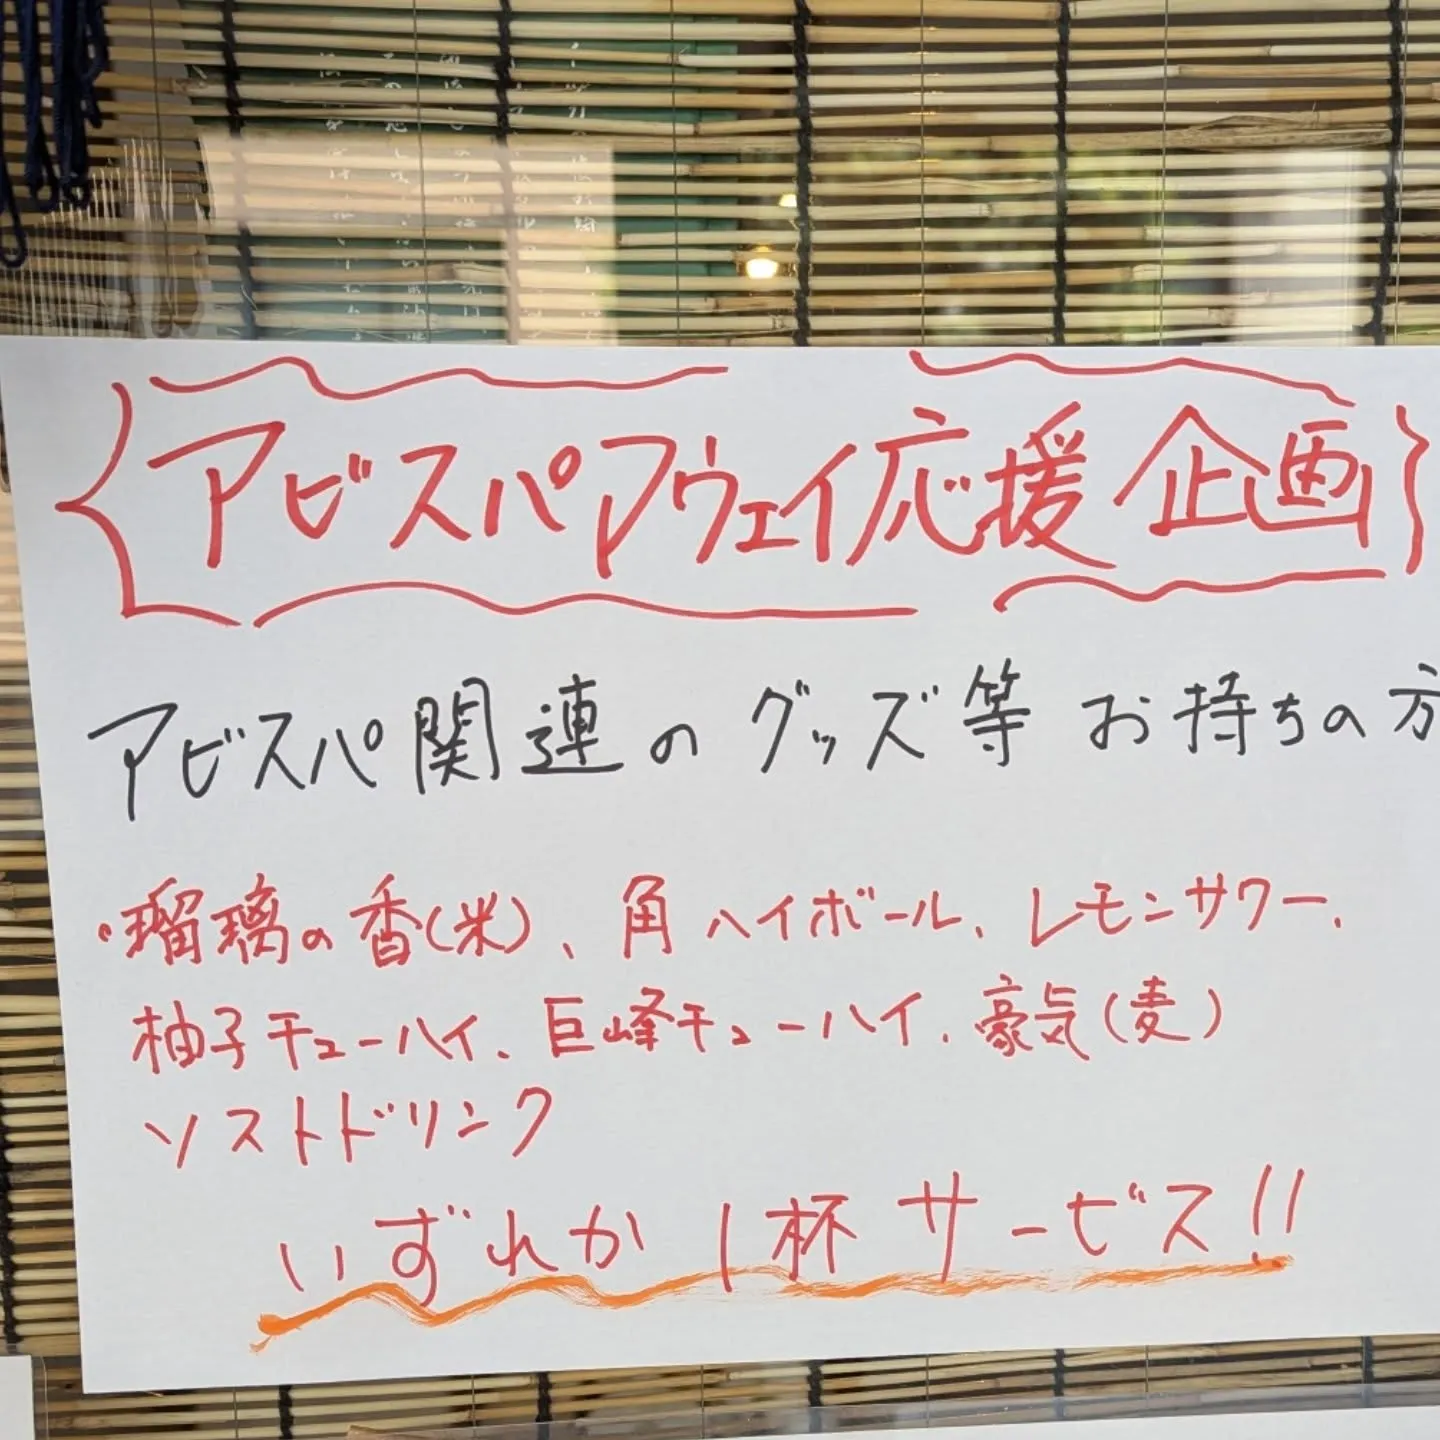 アビスパアウェイ応援企画
アビスパ関連のグッズ等お持ちの方
・瑠璃の香(米)、角ハイボール、レモンサワー、
柚子チューハイ、巨峰チューハイ、豪気(麦)
ソストドリンク
いずれか1杯サービス!!